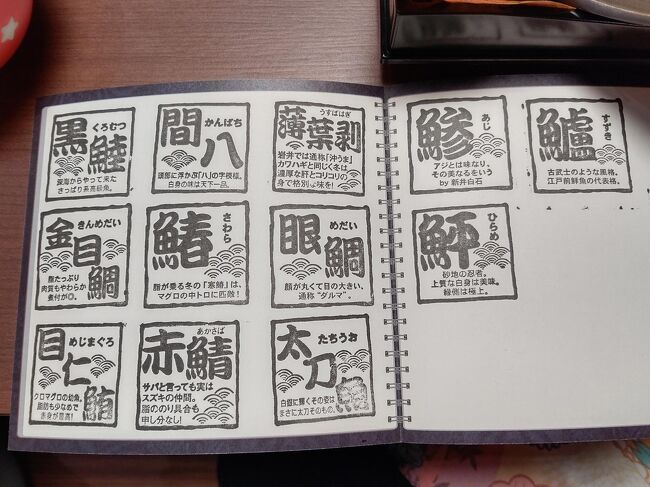 黒鯥
くろむつ
深海からやって来た
さっぱり系高級魚。
間八
かんぱち
頭部に浮かぶ「八」の字模様。
白身の味は天下一品。
薄葉剥
うすばはぎ
岩井では通称「沖うま」
カワハギと同じく冬は
濃厚な肝とコリコリの
身で格別な味を!
金目鯛
きんめだい
脂たっぷり
肉質もやわらか
煮付が◎。
鰆
さわら
脂が乗る冬の「寒鰆」は、
マグロの中トロに匹敵!
眼鯛
めだい
顔が丸くて目の大きい、
通称“ダルマ”。
目仁鮪
めじまぐろ
クロマグロの幼魚。
脂肪も少なめで
赤身が最高!
赤鯖
あかさば
サバと言っても実は
スズキの仲間。
脂ののり具合も
申し分なし!
太刀魚
たちうお
白銀に輝くその姿は
まさに太刀そのもの。
鯵
あじ
アジとは味なり、
その美なるをいう
by 新井白石
鱸
すずき
古武士のような風格。
江戸前鮮魚の代表格。
鮃
ひらめ
砂地の忍者。
上質な白身は美味。
縁側は極上。